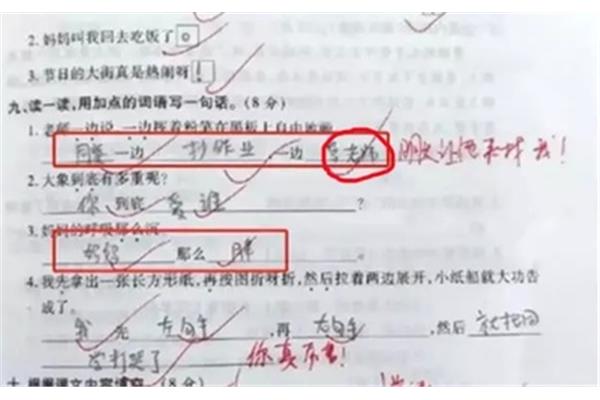 2. 妈妈叫我回去吃饭了。
3. 节日的大街真是热闹呀!
九、读一读,用加点的词语写一句话。(8分)
1. 老师一边说,一边挥着粉笔在黑板上自由地画
同桌 一边 抄作业,一边 骂老师 明天让他来找我!
2. 大象到底有多重呢?
你 到底 爱谁 ?
3. 妈妈的呼吸那么沉。
妈妈 那么 胖 。
4. 我先拿出一张长方形纸,再按图折呀折,然后拉着两边展开,小纸船就大功告
成了。
我 先 左勾拳 ,再 右勾拳 ,然后
你真厉害!